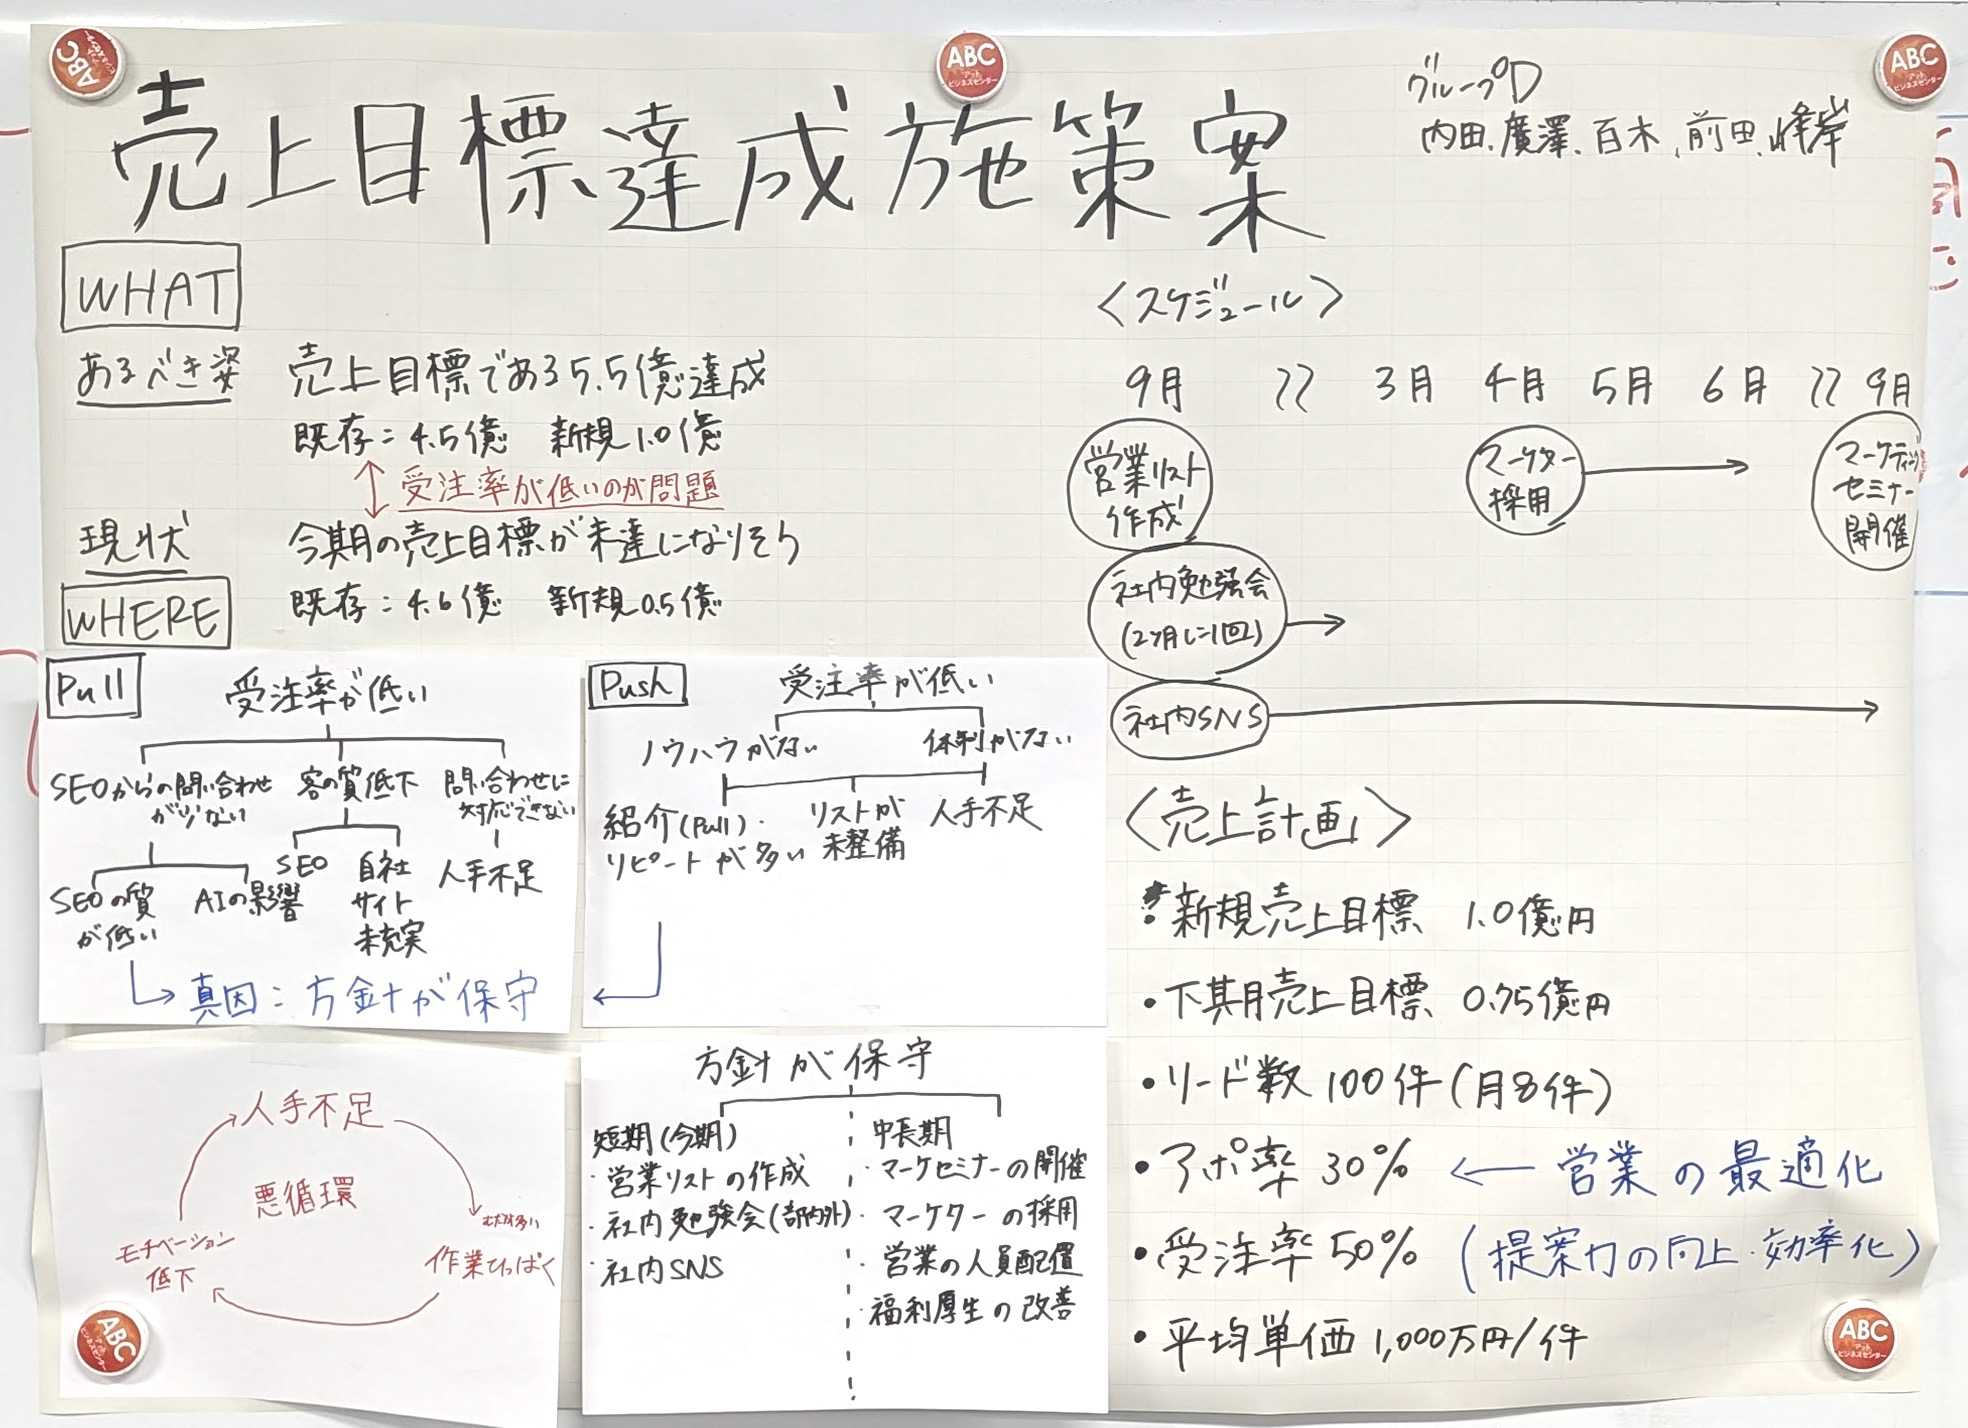 売上目標達成施策案
グループD
内田、廣澤、百木、前田、峰岸
WHAT
あるべき姿
売上目標である5.5億達成
既存:4.5億 新規1.0億
受注率が低いのが問題
現状
今期の売上目標が未達になりそう
既存:4.6億 新規0.5億
WHERE
Pull
受注率が低い
SEOからの問い合わせ
が少ない
客の質低下
問い合わせに
対応できない
SEOの質
が低い
AIの影響
SEO
自社
サイト
未充実
人手不足
真因:方針が保守
Push
受注率が低い
ノウハウがない
体制がない
紹介(Pull)・
リピートが多い
リストが
未整備
人手不足
人手不足
悪循環
むだが多い
作業ひっぱく
モチベーション
低下
方針が保守
短期(今期)
・営業リストの作成
・社内勉強会(部内外)
・社内SNS
中長期
・マーケセミナーの開催
・マーケターの採用
・営業の人員配置
・福利厚生の改善
〈スケジュール〉
9月 〃 3月 4月 5月 6月 〃 9月
営業リスト
作成
マーケター
採用
マーケティング
セミナー
開催
社内勉強会
(2ヶ月に1回)
社内SNS
〈売上計画〉
・新規売上目標 1.0億円
・下期売上目標 0.75億円
・リード数 100件(月8件)
・アポ率 30% ← 営業の最適化
・受注率 50% (提案力の向上・効率化)
・平均単価 1,000万円/件
ABC
アット
ビジネスセンター
ABC
アット
ビジネスセンター
ABC
アット
ビジネスセンター
ABC
アット
ビジネスセンター
ABC
アット
ビジネスセンター